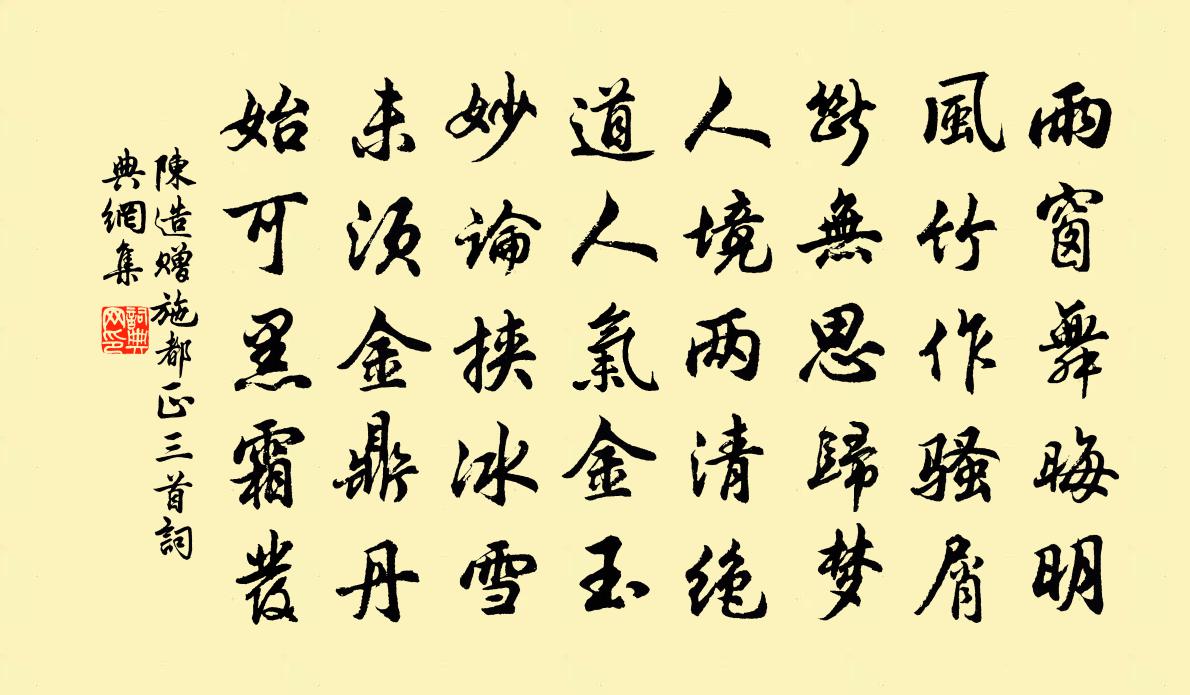 雨窗舞晦明
風竹作騷屑
斷無思歸梦
人境两清绝
道人氣金玉
妙論挟冰雪
未須金鼎丹
始可黑霜髮
陳造贈施都正三首詞
典網集
詞典網印